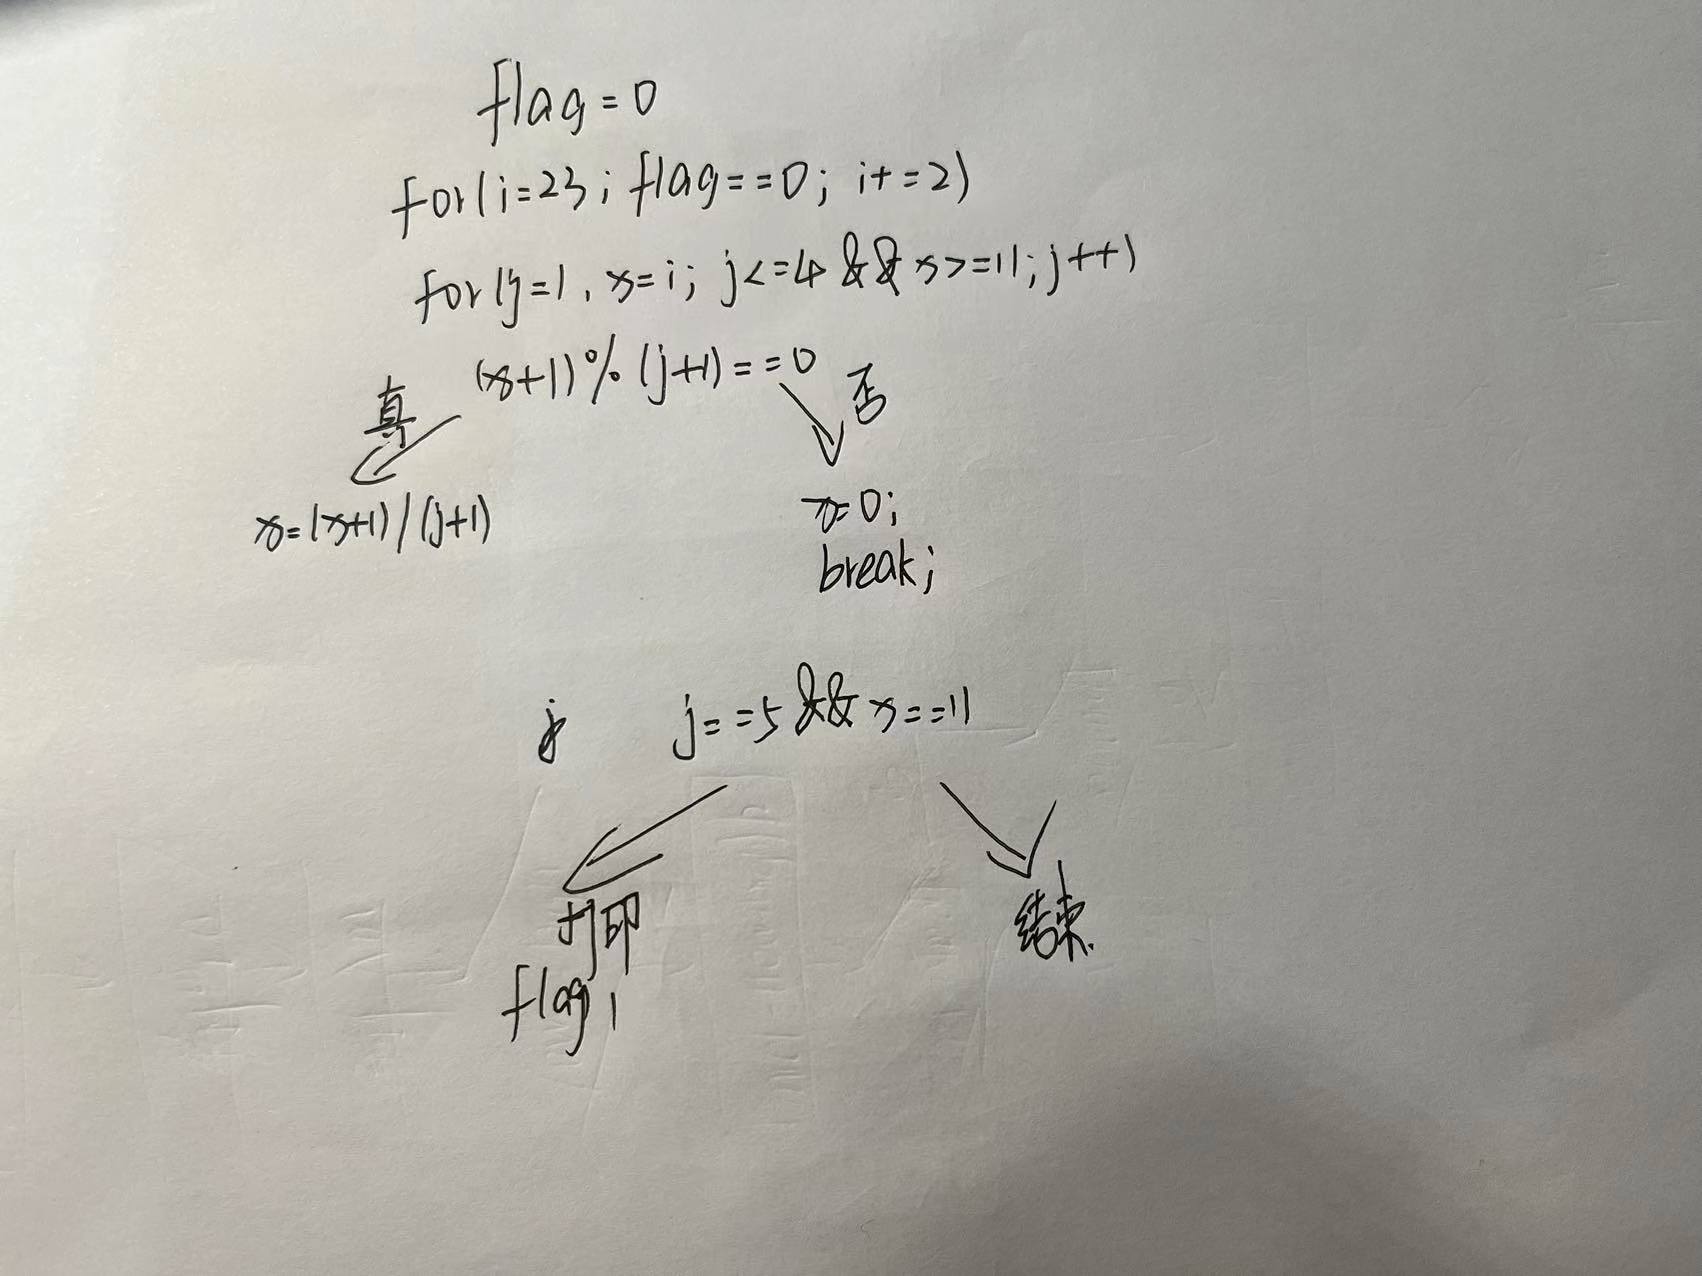 flag=0
for(i=23; flag==0; i+=2)
for(j=1, x=i; j<=4 && x>=11; j++)
(x+1)%(j+1)==0
真 否
x=(x+1)/(j+1)
x=0;
break;
j j==5 && x==11
打印
结束.
flag 1